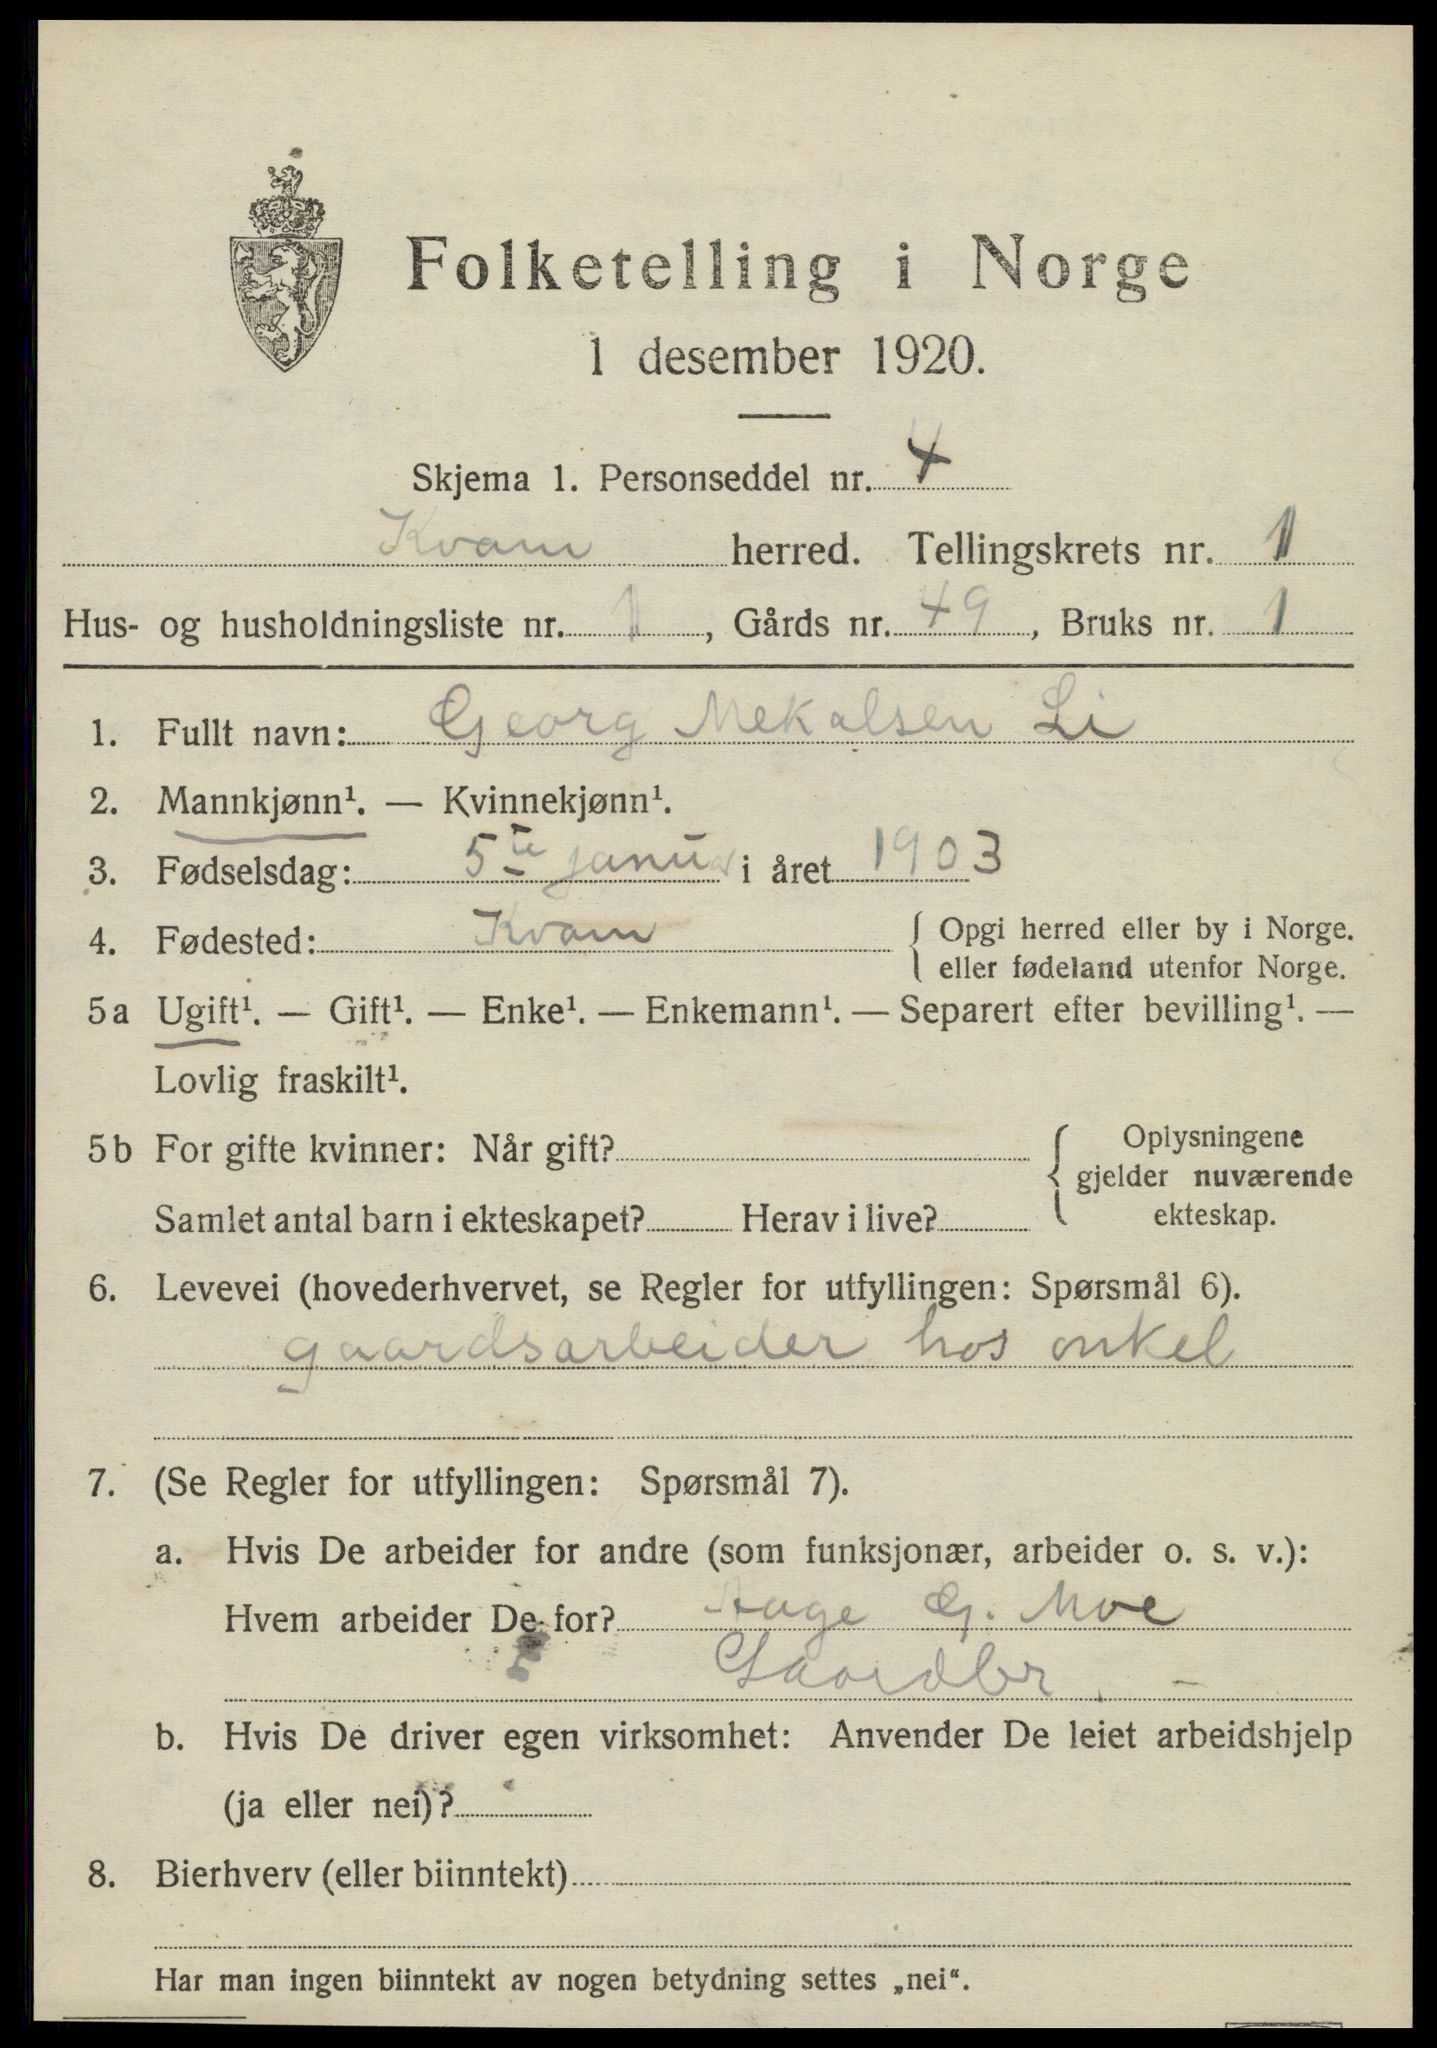 Folketelling i Norge
1 desember 1920.
Skjema 1. Personseddel nr. 4
Kvam herred. Tellingskrets nr. 1
Hus- og husholdningsliste nr. 1, Gårds nr. 49, Bruks nr. 1
1. Fullt navn: Georg Mekalsen Li
2. Mannkjønn¹. — Kvinnekjønn¹.
3. Fødselsdag: 5te januar i året 1903
4. Fødested: Kvam { Opgi herred eller by i Norge.
eller fødeland utenfor Norge.
5a Ugift¹. — Gift¹. — Enke¹. — Enkemann¹. — Separert efter bevilling¹. —
Lovlig fraskilt¹.
5b For gifte kvinner: Når gift?
Samlet antal barn i ekteskapet? Herav i live?
{ Oplysningene
gjelder nuværende
ekteskap.
6. Levevei (hovederhvervet, se Regler for utfyllingen: Spørsmål 6).
gaardsarbeider hos onkel
7. (Se Regler for utfyllingen: Spørsmål 7).
a. Hvis De arbeider for andre (som funksjonær, arbeider o. s. v.):
Hvem arbeider De for? Aage G. Moe
Gaardbr. -
b. Hvis De driver egen virksomhet: Anvender De leiet arbeidshjelp
(ja eller nei)?
8. Bierhverv (eller biinntekt)
Har man ingen biinntekt av nogen betydning settes „nei“.